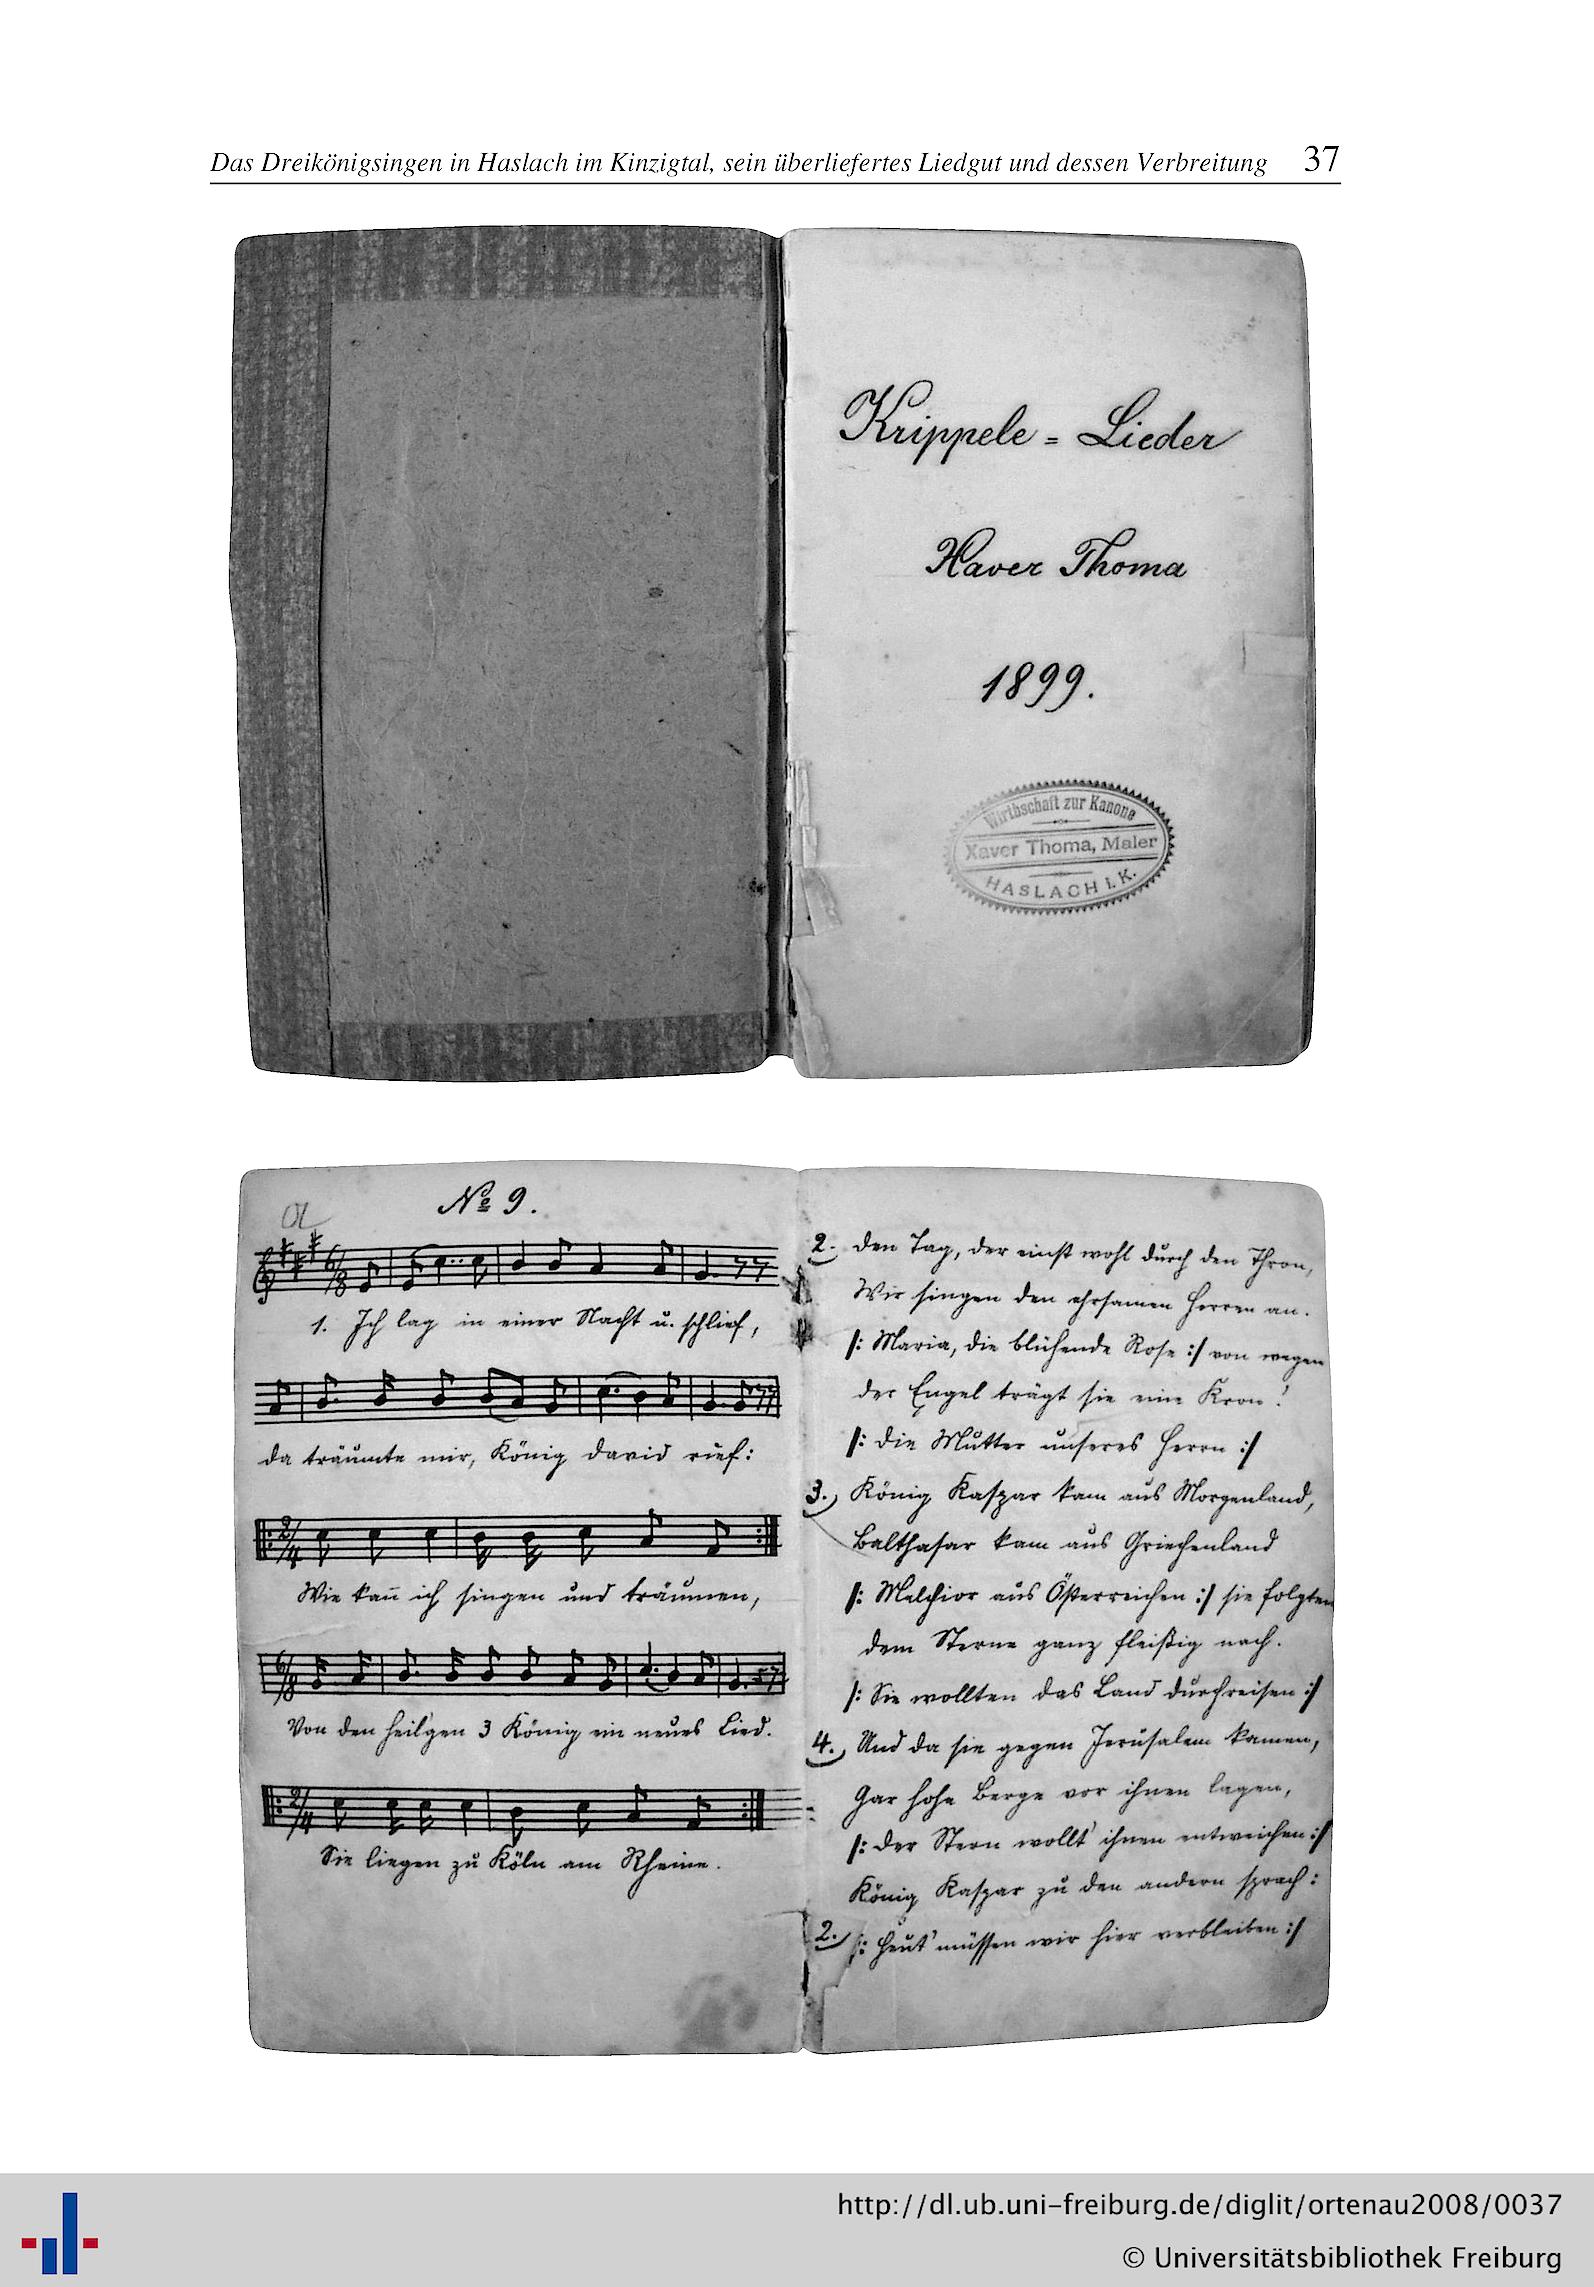 Das Dreikönigsingen in Haslach im Kinzigtal, sein überliefertes Liedgut und dessen Verbreitung 37
Krippele = Lieder
Xaver Thoma
1899.
Wirthschaft zur Kanone
Xaver Thoma, Maler
HASLACH i. K.
№ 9.
6/8
1. Ich lag in einer Nacht u. schlief,
da träumte mir, König David rief:
2/4
Wie kan̄ ich singen und träumen,
6/8
Von den heil'gen 3 König ein neues Lied.
2/4
Sie liegen zu Köln am Rheine.
2. Den Tag, der einst wohl durch den Thron,
Wir singen den ehrsamen Herren an.
/: Maria, die blühende Rose :/ von wegen
der Engel trägt sie eine Kron!
/: Die Mutter unseres Herrn :/
3. König Kaspar kam aus Morgenland,
Balthasar kam aus Griechenland
/: Melchior aus Österreichen :/ sie folgten
dem Sterne ganz fleißig nach.
/: Sie wollten das Land durchreisen :/
4. Und da sie gegen Jerusalem kamen,
Gar hohe Berge vor ihnen lagen,
/: Der Stern wollt' ihnen entweichen :/
König Kaspar zu den andern sprach:
2. /: Heut' müssen wir hier verbleiben :/
http://dl.ub.uni-freiburg.de/diglit/ortenau2008/0037
© Universitätsbibliothek Freiburg